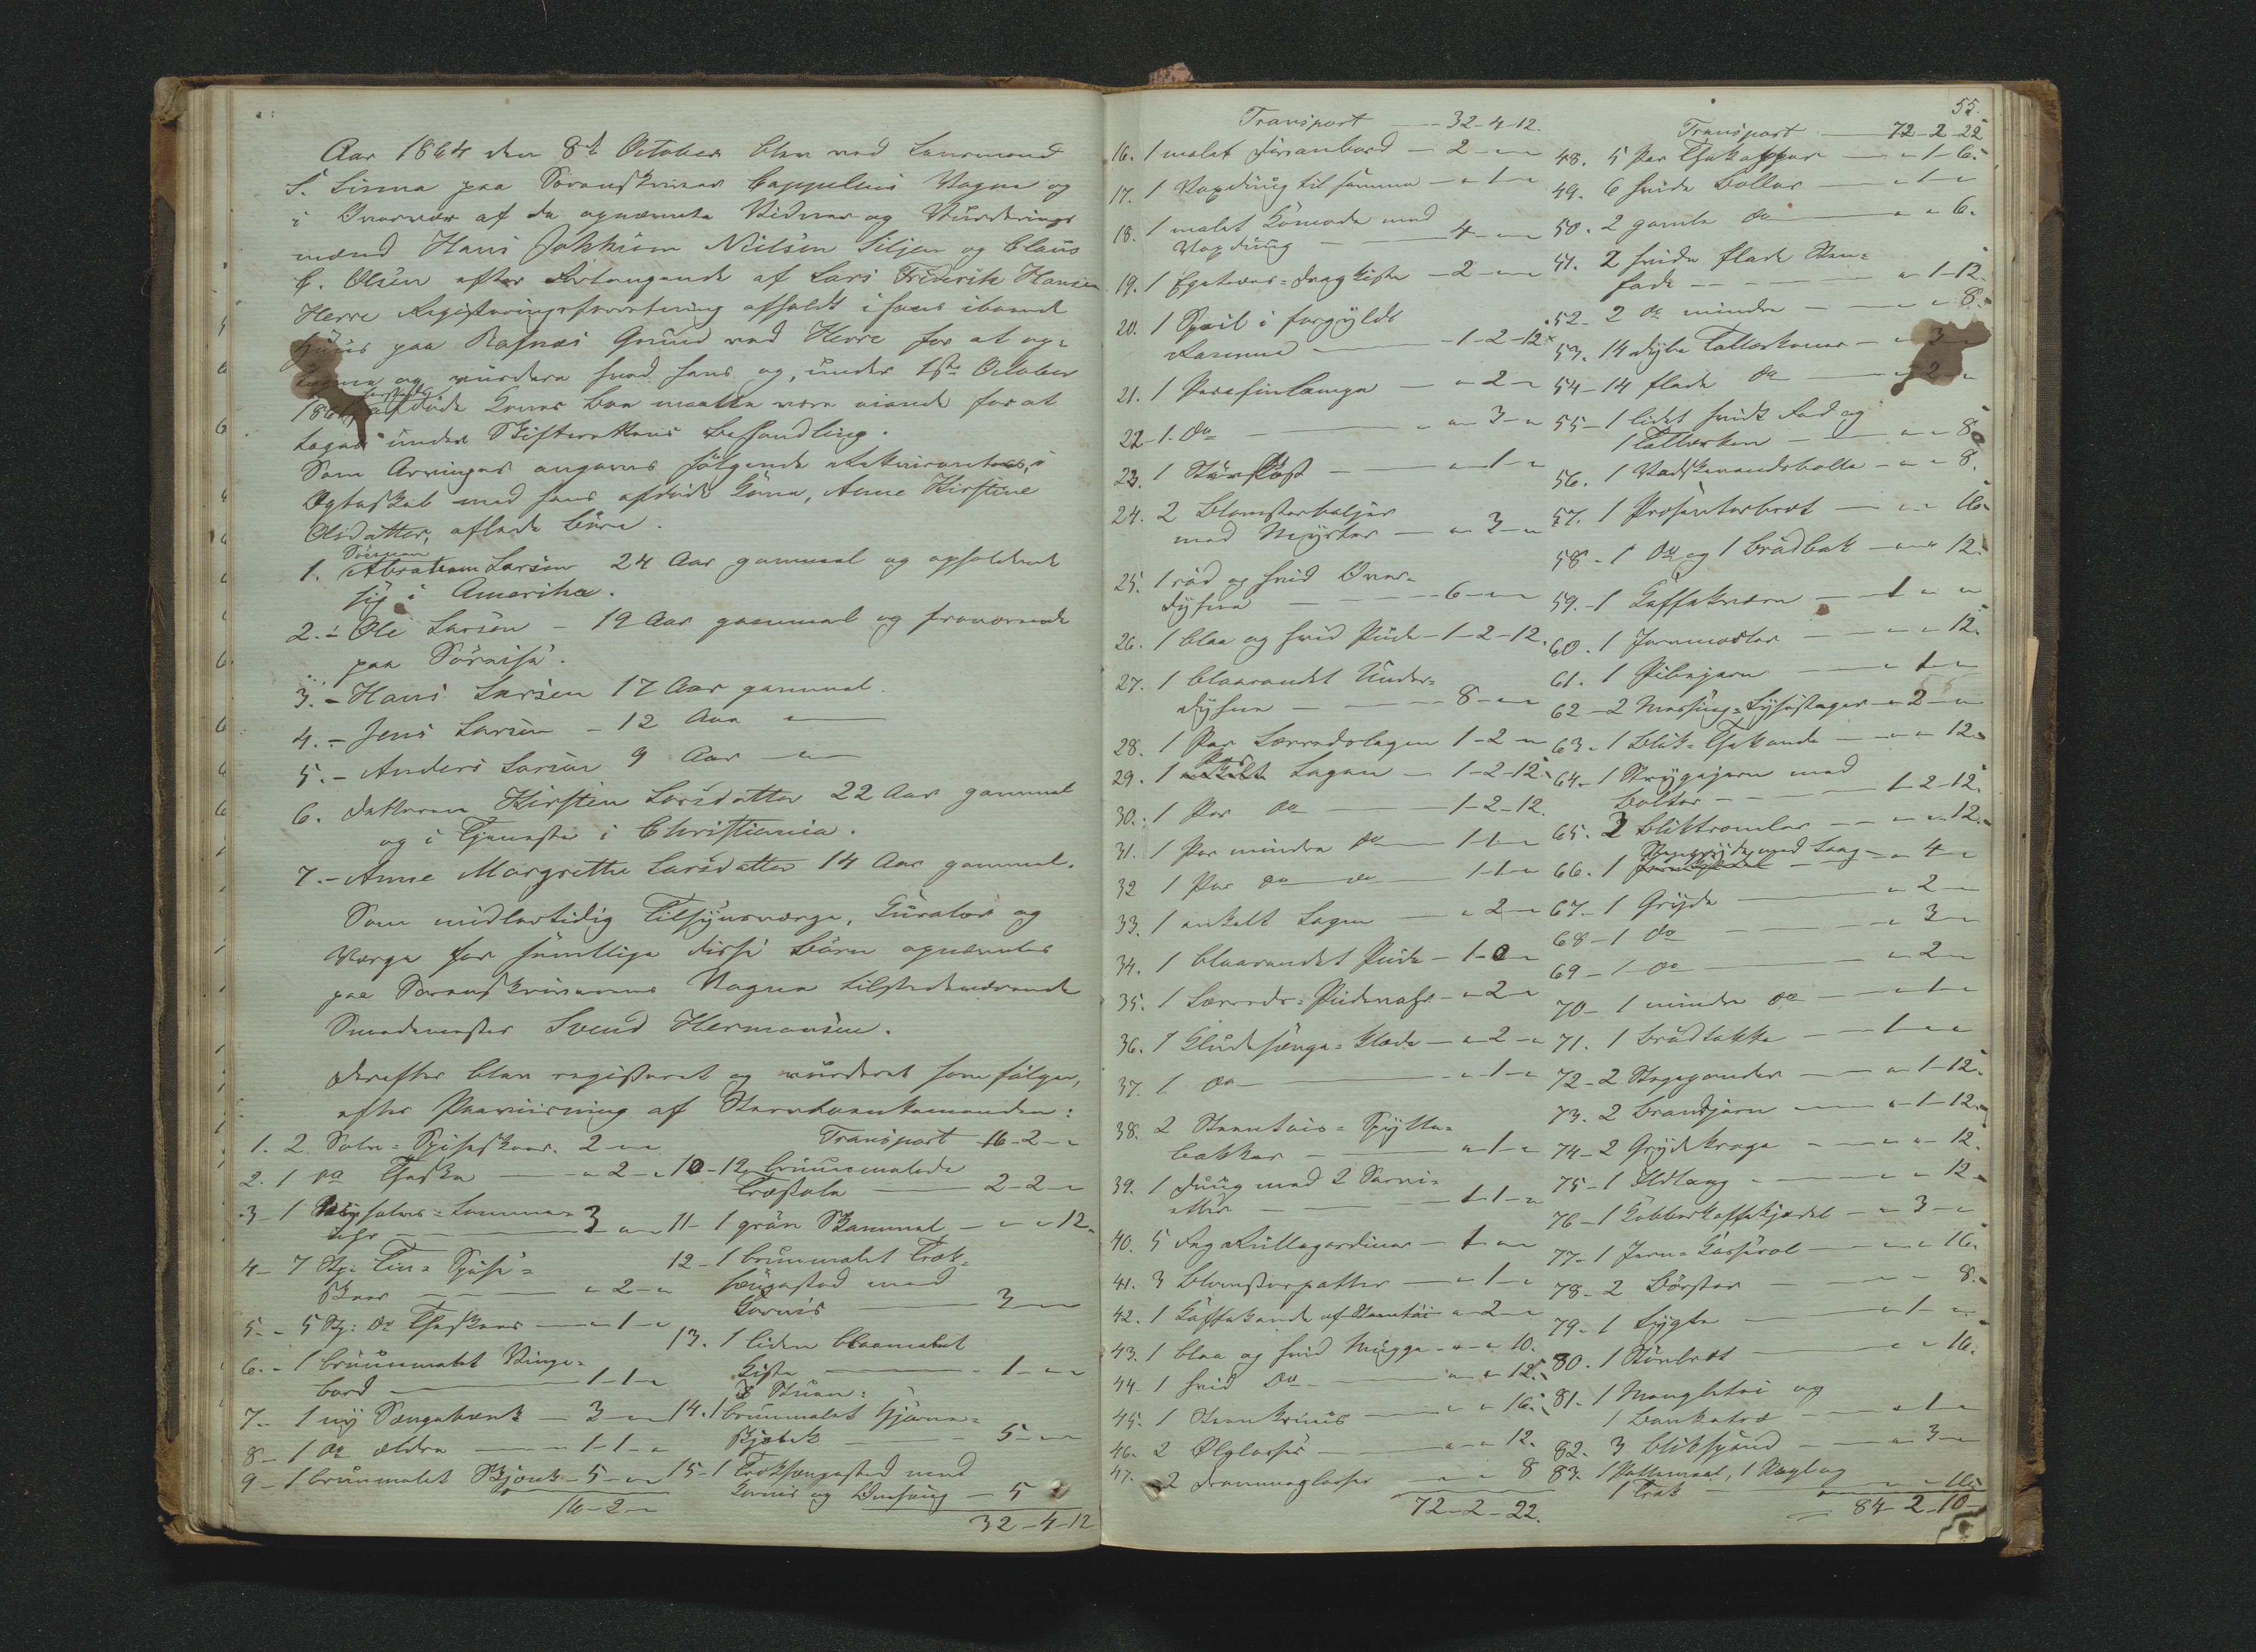 Aar 1864 den 8de October blev ved Lensmand
S. Linna paa Sorenskriver Cappelens Vegne og
i Overvær af de opnævnte Vidner og Vurderings
mænd Hans Jokkum Nielsen Siljan og Claus
C. Olsen efter Forlangende af Lars Frederik Hansen
Herre Registreringsforretning afholdt i hans iboende
Huus paa Rafnæs Grund ved Herre for at op-
tegne og vurdere hvad hans og, under 1ste October
1861 afdøde Kones Boe maatte være eiende for at
tages under Skifterettens Behandling.
Som Arvinger angaves følgende i
Ægteskab med hans afdøde Kone, Anne Kirstine
Olsdatter, aflede Børn.
1. Sønnen Abraham Larsen 24 Aar gammel og opholdende
sig i Amerika.
2. - Ole Larsen - 19 Aar gammel og fraværende
paa Søreise.
3. - Hans Larsen 17 Aar gammel.
4. - Jens Larsen - 12 Aar "
5. - Anders Larsen 9 Aar "
6. Datteren Kirstine Larsdatter 22 Aar gammel
og i Tjeneste i Christiania.
7. - Anne Margrethe Larsdatter 14 Aar gammel.
Som midlertidig Tilsynsværge, Curator og
Værge for samtlige disse Børn opnævntes
paa Sorenskriverens Vegne tilstedeværende
Smedemester Svend Hermansen.
Derefter blev registreret og vurderet som følger,
efter Paaviisning af Stervboenkemanden:
1. 2 Sølv-Spiseskeer. 2 - " - "
2. 1 do Theske - " - 2 - "
3 - 1 Sølv-Lomme-
Uhr - 3 - " - "
4 - 7 Stk: Tin-Spise-
skeer - " - 2 - "
5 - 5 Stk: do Theskeer - " - 1 - "
6. - 1 bruunmalet Vinge-
bord - 1 - 1 - "
7 - 1 ny Sengebænk - 3 - " - "
8 - 1 do ældre - 1 - 1 - "
9 - 1 brunmalet Skjænk - 5 - " - "
16 - 2 - "
Transport 16 - 2 - "
10 - 12 bruunmalede
Træstole - 2 - 2 - "
11 - 1 grøn Skammel - " - " - 12.
12 - 1 brunmalet Træk-
sengested med
Gavnis - 3 - " - "
13. 1 liden blaamalet
Kiste - 1 - " - "
I Stuen:
14. 1 brunmalet Hjørne-
skjab - 5 - " - "
15 - 1 Træksengested med
Karnis og Omhæng - 5 - " - "
32 - 4 - 12
55.
Transport - 32 - 4 - 12.
16. 1 malet Furuebord - 2 - " - "
17. 1 Voxdug til samme - " - 1 - "
18. 1 malet Komode med
Voxdug - 4 - " - "
19. 1 Egetræes-Dragkiste - 2 - " - "
20. 1 Speil i forgyldt
Ramme - 1 - 2 - 12
21. 1 Parafinlampe - " - 2 - "
22 - 1. do - " - 3 - "
23. 1 Støvkost - " - 1 - "
24. 2 Blomsterbaljer
med Myrter - " - 3 - "
25. 1 rød og hvid Over-
dyne - 6 - " - "
26. 1 blaa og hvid Pude - 1 - 2 - 12.
27. 1 blaarandet Under-
dyne - 8 - " - "
28. 1 Par Lærredslagen 1 - 2 - "
29. 1 Par Lagen - 1 - 2 - 12.
30. 1 Par do - 1 - 2 - 12.
31. 1 Par mindre do - 1 - 1 - "
32 1 Par do do - 1 - 1 - "
33. 1 enkelt Lagen - " - 2 - "
34. 1 blaarandet Pude - 1 - " - "
35. 1 Lærreds-Pudevahr - " - 2 - "
36. 1 Kludesenge-Klæde - " - 2 - "
37. 1 do - " - 1 - "
38. 2 Steentøis-Spytte-
bakker - " - 1 - "
39. 1 Duug med 2 Servi-
etter - 1 - 1 - "
40. 5 Fag Rullegardiner - 1 - " - "
41. 3 Blomsterpotter - " - 1 - "
42. 1 Kaffekande af Steentøi - " - 2 - "
43. 1 blaa og hvid Mugge - " - " - 10.
44 - 1 hvid do - " - " - 12.
45. 1 Steenkruus - " - " - 16.
46. 2 Ølglasse - " - " - 12.
47. 2 Dramneglasse - " - " - 8
72 - 2 - 22.
Transport - 72 - 2 - 22
48. 5 Par Thekopper - " - 1 - 6.
49. 6 hvide Boller - " - 1 - "
50. 2 gamle do - " - " - 6.
51. 2 hvide flade Steen-
fade - " - 1 - 12
52. 2 do mindre - " - " - 8.
53. 14 dybe Tallerkener - " - 3 - "
54 - 14 flade do - " - 2 - "
55 - 1 lidet hvidt Fad og
1 Tallerken - " - " - 8
56. 1 Vadskevandsbolle - " - " - 8.
57. 1 Præsenterbret - " - " - 16.
58. - 1 do og 1 Brødbak - " - " - 12.
59. - 1 Kaffekværn - 1 - " - "
60. 1 Jernmorter - " - " - 12.
61. 1 Pibejern - " - 1 - "
62 - 2 Messing-Lysestager - " - 2 - "
63. 1 Blik-Thekande - " - " - 12
64 - 1 Strygejern med
Bolter - 1 - 2 - 12.
65. 3 Bliktromler - " - " - 12.
66. 1 med Laag - " - 4 - "
67. 1 Gryde - " - 2 - "
68 - 1 do - " - 3 - "
69 - 1 do - " - 2 - "
70 - 1 mindre do - " - 1 - "
71. 1 Brødtakke - 1 - " - "
72 - 2 Stegepander - " - 1 - 12.
73. 2 Brandjern - " - 1 - 12.
74 - 2 Grydekroge - " - " - 12.
75 - 1 Ildtang - " - " - 12
76 - 1 Kobberkaffekjedel - " - 3 - "
77 - 1 Jern-Casserol - " - " - 16.
78 - 2 Børster - " - " - 8.
79 - 1 Lygte - " - 1 - "
80. 1 Støvbret - " - " - 16.
81. 1 Mangletøi og
1 Banketræ - " - 1 - "
82. 3 Blikspand - " - 3 - "
83. 1 Pottemaal, 1 Pægl og
1 Trak - " - " - 16
84 - 2 - 10